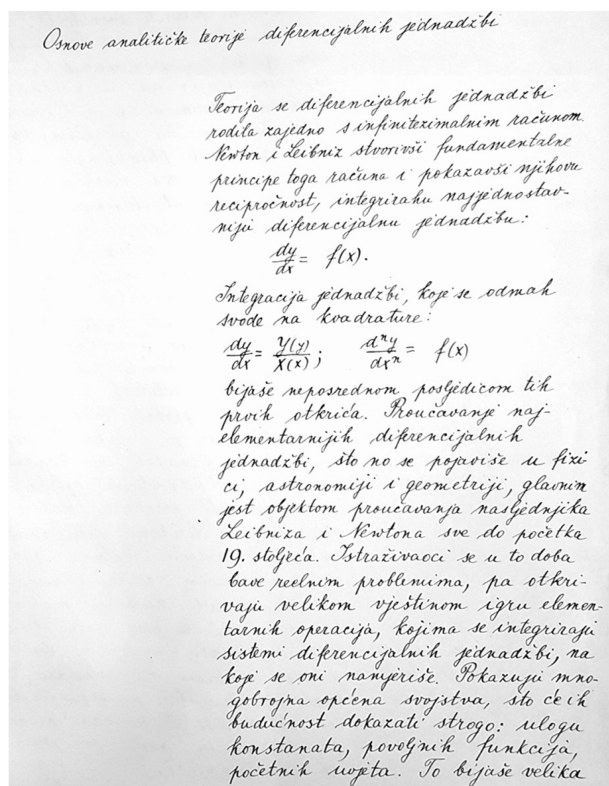 Osnove analitičke teorije diferencijalnih jednadžbi
Teorija se diferencijalnih jednadžbi
rodila zajedno s infinitezimalnim računom
Newton i Leibniz stvorivši fundamentalne
principe toga računa i pokazavši njihovu
recipročnost, integrirahu najjednostav-
niju diferencijalnu jednadžbu:
dy/dx = f(x).
Integracija jednadžbi, koje se odmah
svode na kvadrature:
dy/dx = Y(y)/X(x); dⁿy/dxⁿ = f(x)
bijaše neposrednom posljedicom tih
prvih otkrića. Proučavanje naj-
elementarnijih diferencijalnih
jednadžbi, što no se pojaviše u fizi
ci, astronomiji i geometriji, glavnim
jest objektom proučavanja nasljednjika
Leibniza i Newtona sve do početka
19. stoljeća. Istraživaoci se u to doba
bave reelnim problemima, pa otkri-
vaju velikom vještinom igru elemen-
tarnih operacija, kojima se integriraju
sistemi diferencijalnih jednadžbi, na
koje se oni namjeriše. Pokazuju mno-
gobrojna općena svojstva, što će ih
budućnost dokazati strogo: ulogu
konstanata, povoljnih funkcija,
početnih uvjeta. To bijaše velika